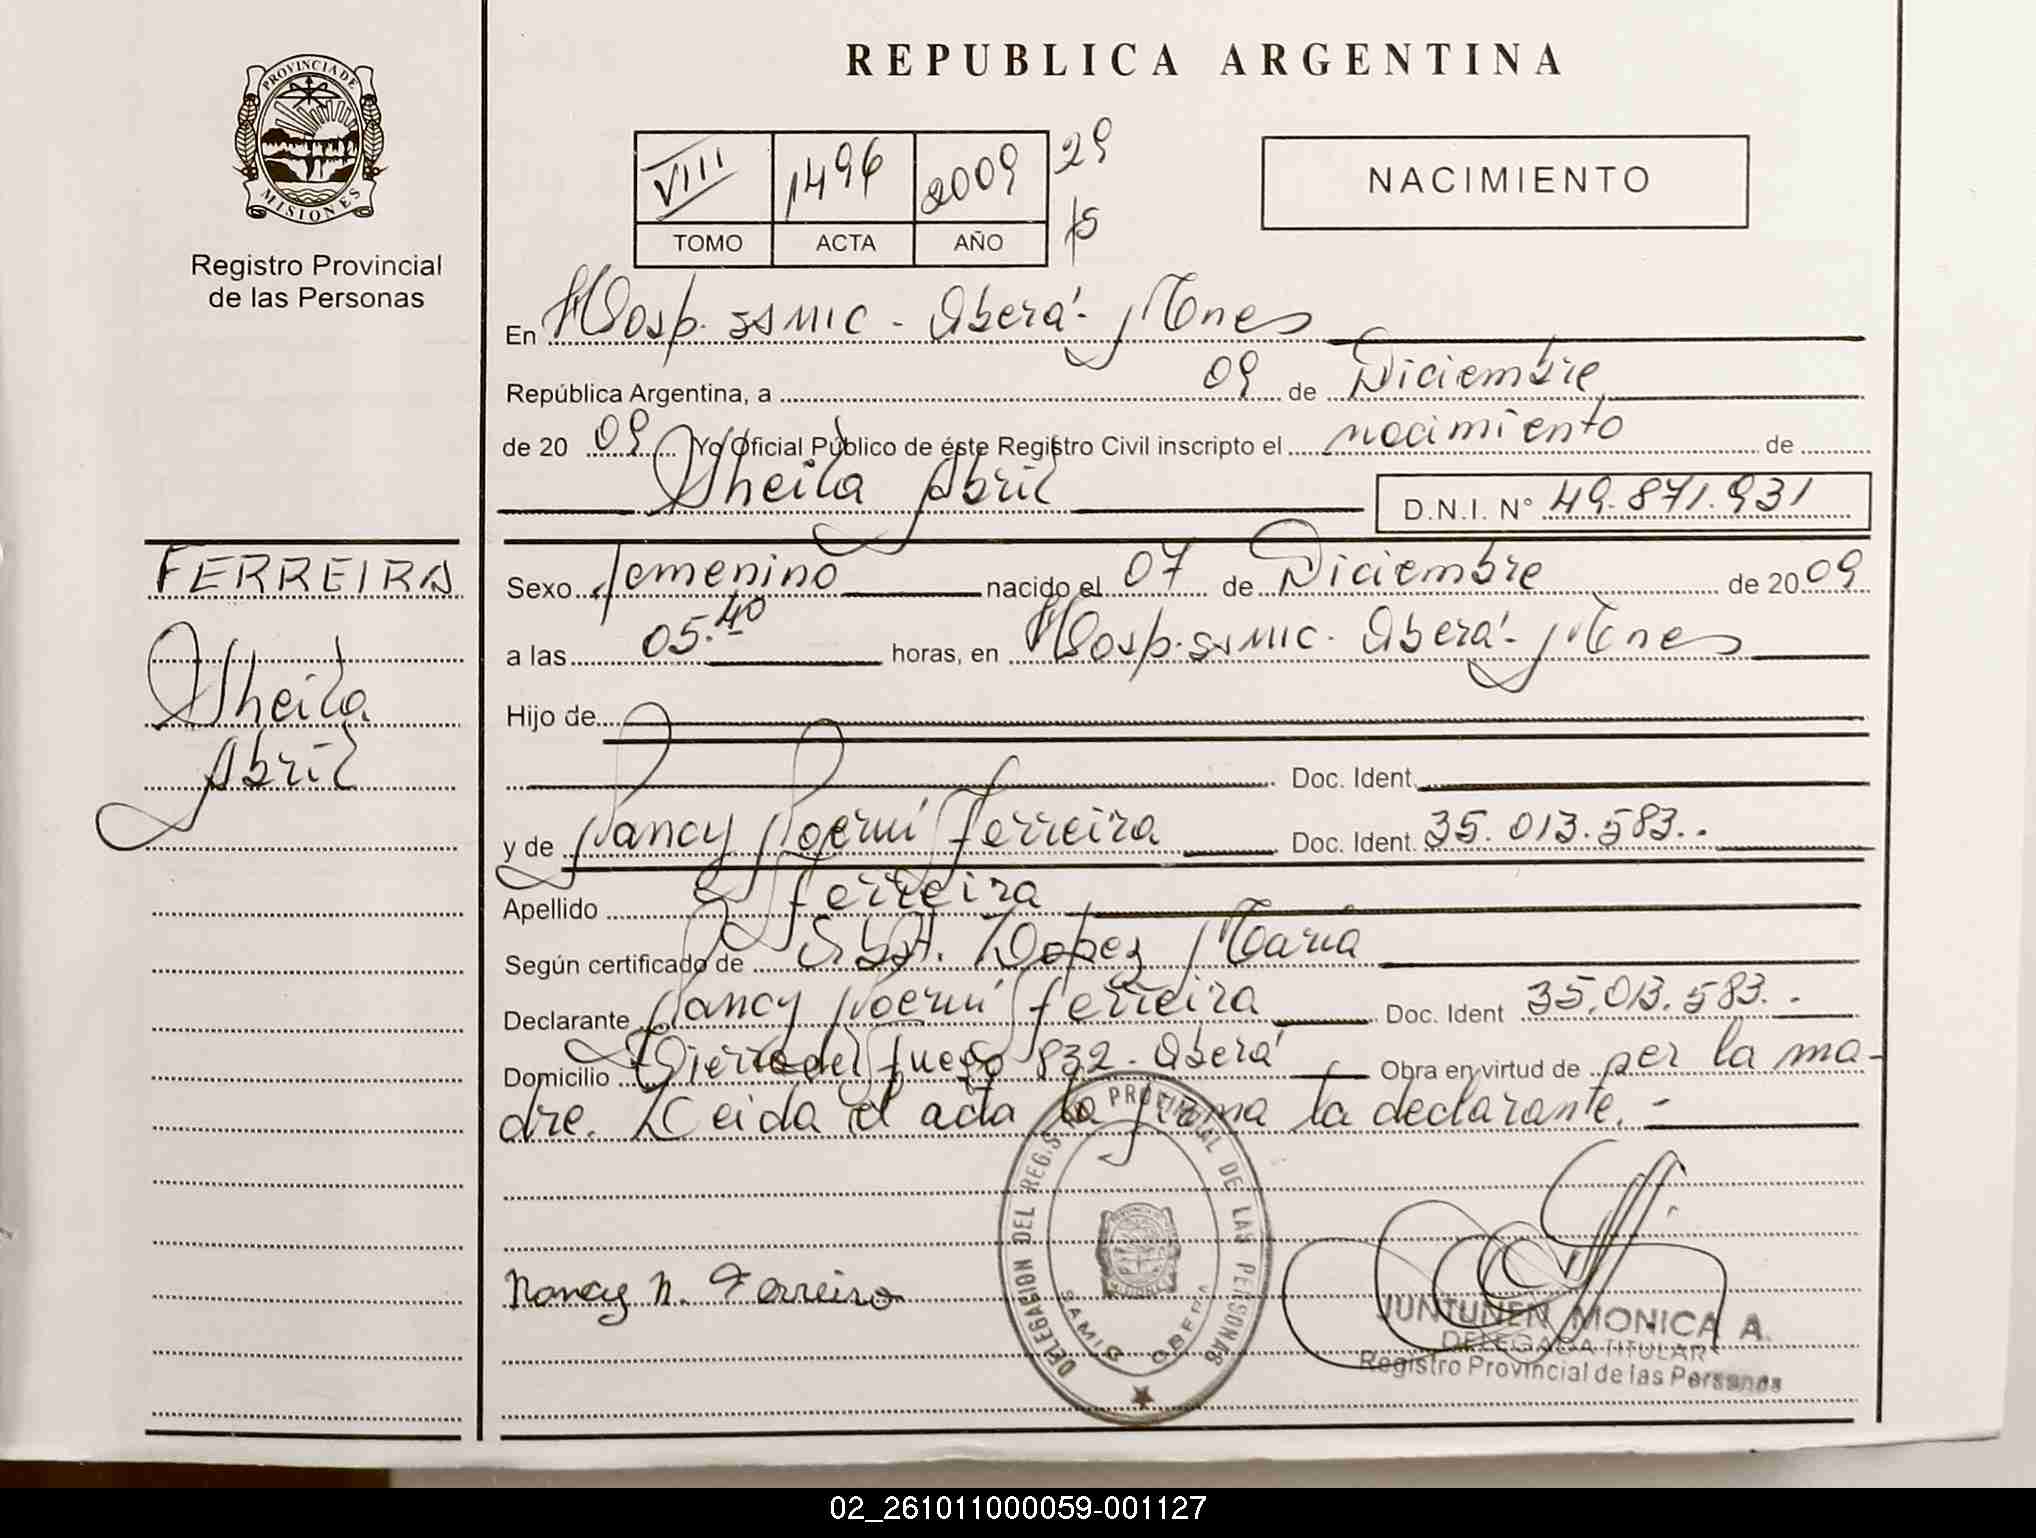 REPUBLICA ARGENTINA
PROVINCIA DE MISIONES
Registro Provincial
de las Personas
VIII 1496 2009 29
TOMO ACTA AÑO 15
NACIMIENTO
En Hosp. SAMIC - Oberá - Mnes
República Argentina, a 09 de Diciembre
de 2009 Yo Oficial Público de éste Registro Civil inscripto el nacimiento de
Sheila Abril D.N.I. N° 49.871.931
FERREIRA
Sheila
Abril
Sexo femenino nacido el 07 de Diciembre de 2009
a las 05.40 horas, en Hosp. SAMIC - Oberá - Mnes
Hijo de
Doc. Ident.
y de Nancy Noemí Ferreira Doc. Ident. 35.013.583..
Apellido Ferreira
Según certificado de Obst. Lopez María
Declarante Nancy Noemí Ferreira Doc. Ident 35.013.583..
Domicilio Tierra del fuego 832 - Oberá Obra en virtud de ser la ma-
dre. Leida el acta la firma la declarante. -
Nancy N. Ferreira
DELEGACION DEL REGISTRO PROVINCIAL DE LAS PERSONAS
SAMIC OBERA
JUNTUNEN MONICA A.
DELEGADA TITULAR
Registro Provincial de las Personas
02_261011000059-001127